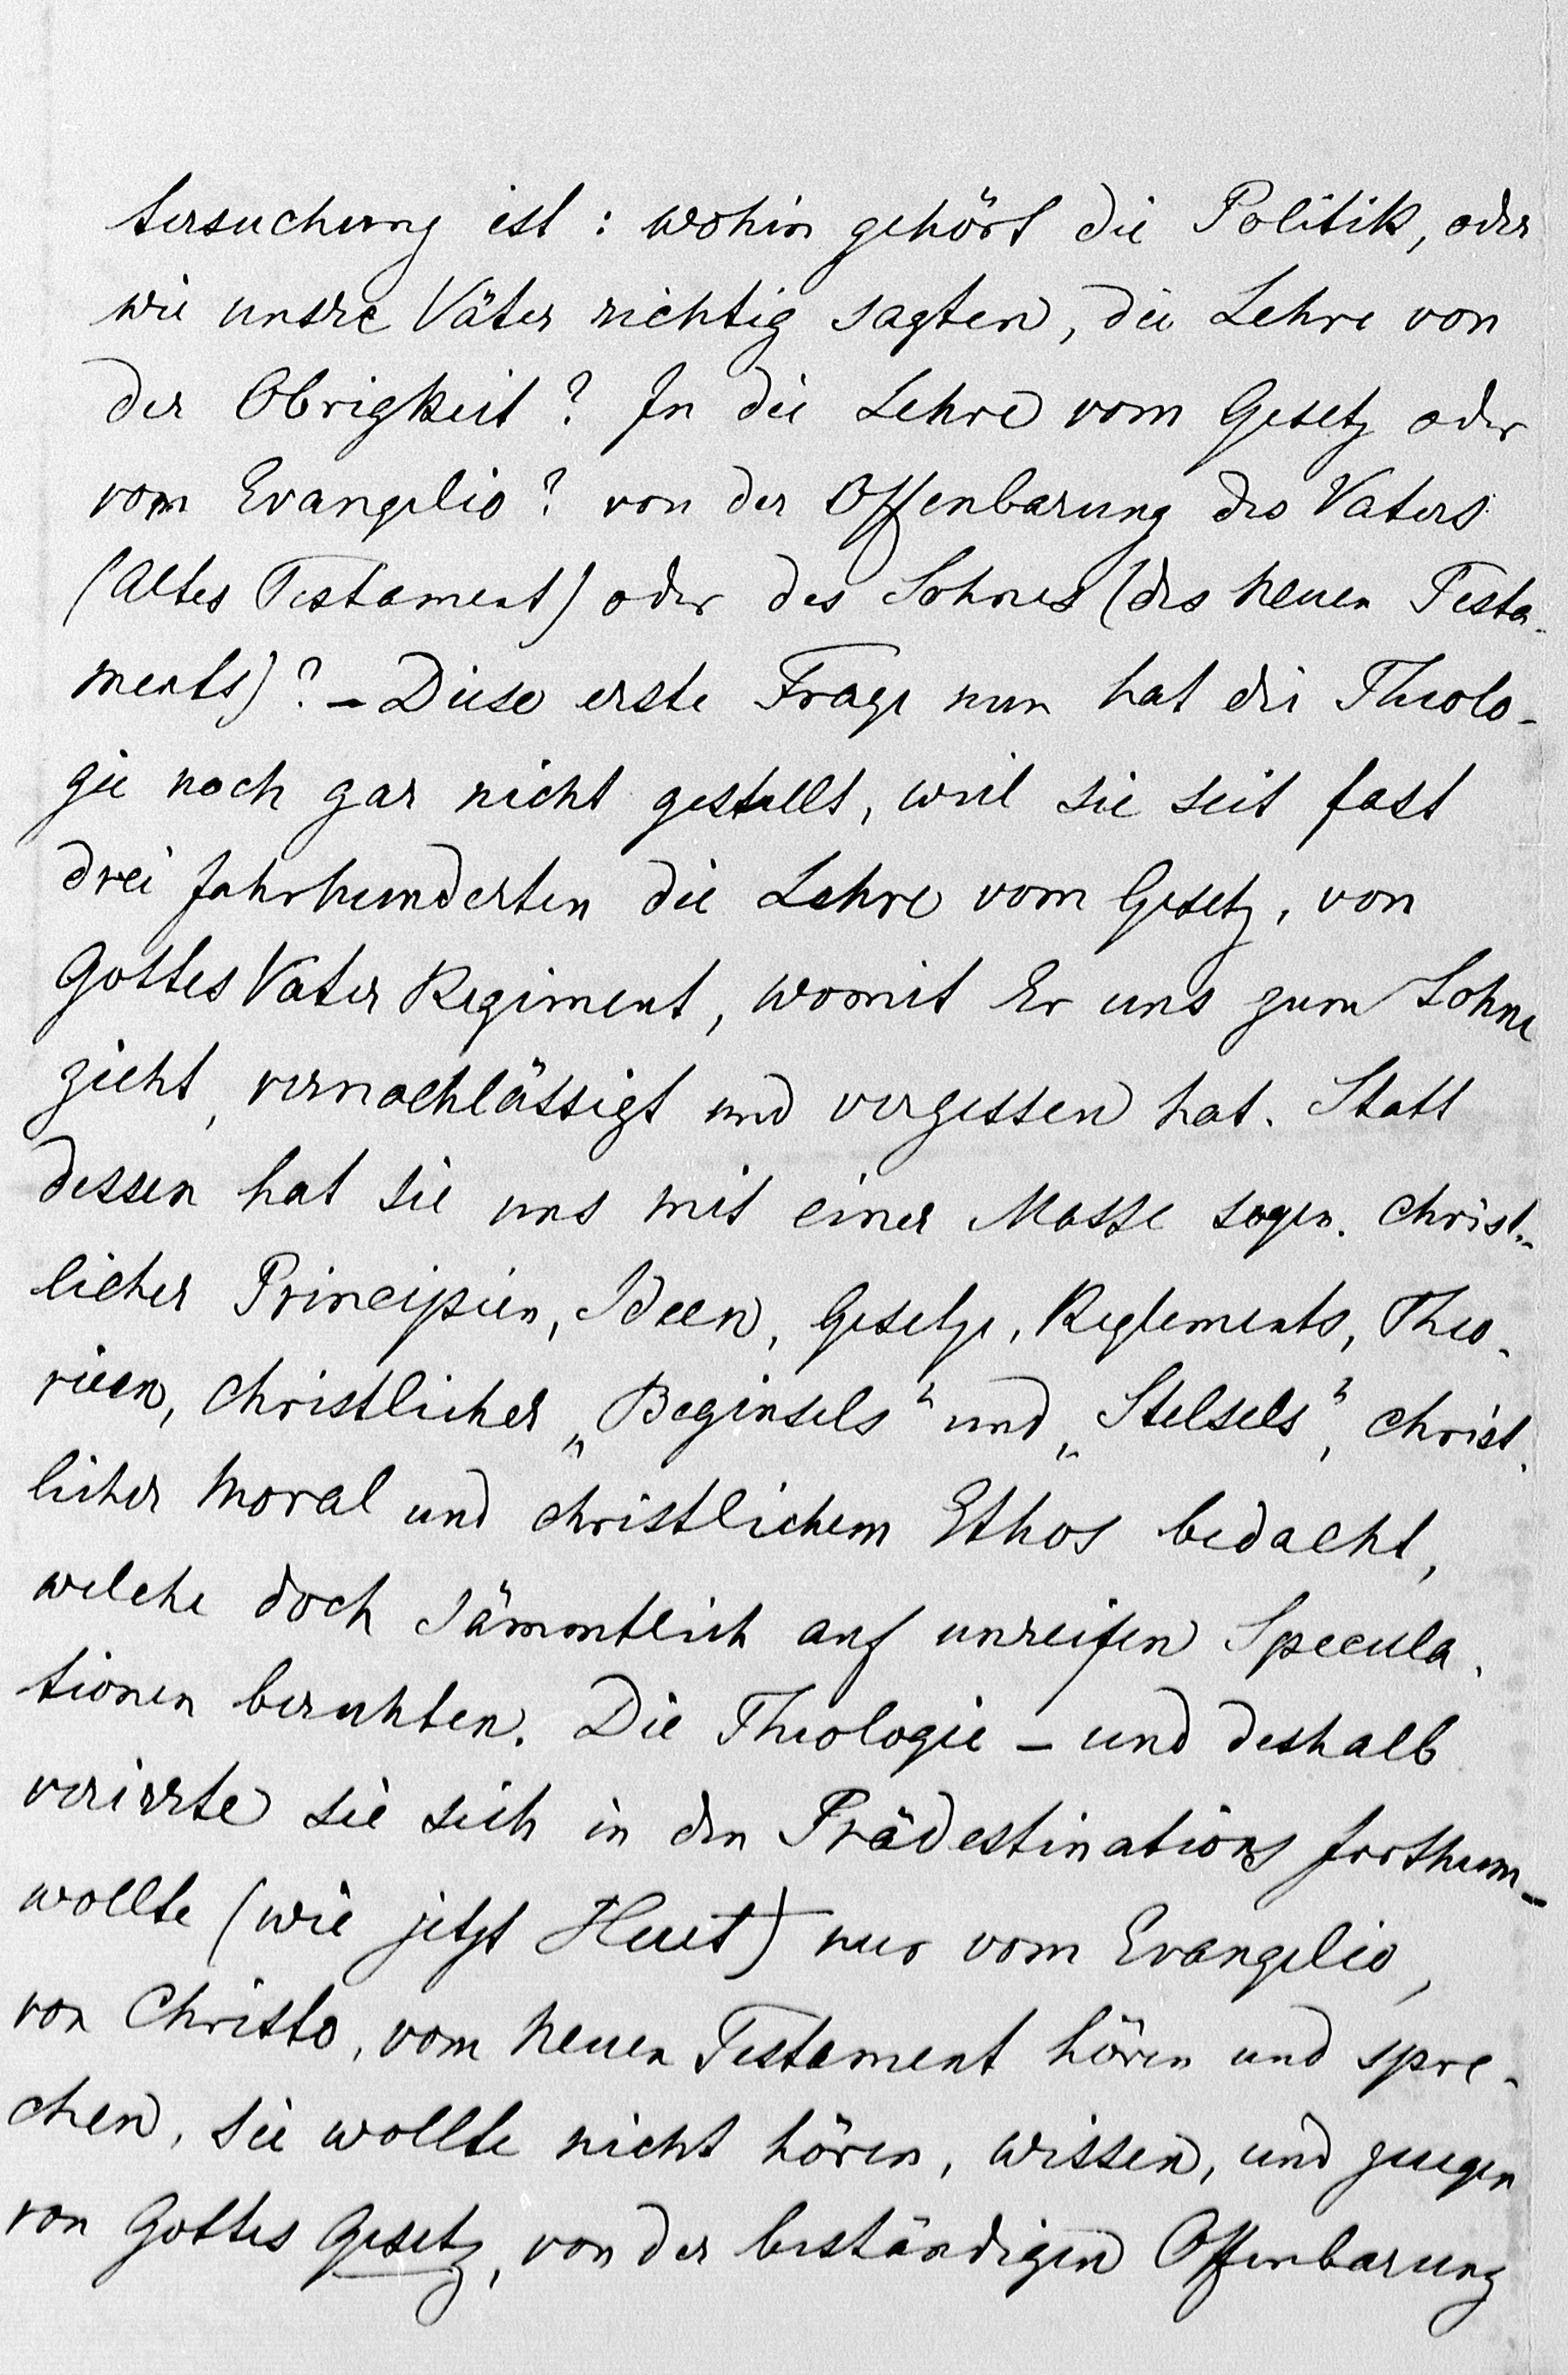 tersuchung ist: wohin gehört die Politik, oder
wie unsre Väter richtig sagten, die Lehre von
der Obrigkeit? In die Lehre vom Gesetz oder
vom Evangelio? von der Offenbarung des Vaters
(Altes Testament) oder des Sohnes (des neuen Testa-
ments)? – Diese erste Frage nun hat die Theolo-
gie noch gar nicht gestellt, weil sie seit fast
drei Jahrhunderten die Lehre vom Gesetz, von
Gottes Vater Regiment, womit Er uns zum Sohne
zieht, vernachlässigt und vergessen hat. Statt
dessen hat sie uns mit einer Masse sogen. christ-
licher Principien, Ideen, Gesetze, Reglements, Theo-
rieen, christlicher „Beginsels“ und „Stelsels“, christ-
licher Moral und christlichem Ethos bedacht,
welche doch sämmtlich auf unreifen Specula-
tionen beruhten. Die Theologie – und deshalb
verirrte sie sich in den Prädestinations Irrthum –
wollte (wie jetzt Huet) nur vom Evangelio,
von Christo, vom neuen Testament hören und spre-
chen, sie wollte nicht hören, wissen, und zeugen
von Gottes Gesetz, von der beständigen Offenbarung